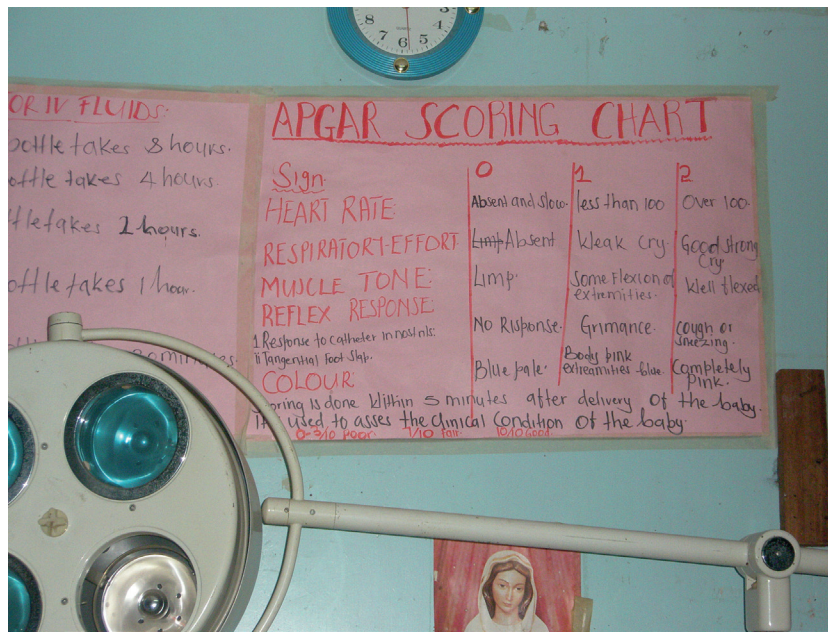 8
7
6
5
4
OR IV FLUIDS:
bottle takes 8 hours.
ottle takes 4 hours.
ttle takes 2 hours.
ottle takes 1 hour.
minutes.
APGAR SCORING CHART
Sign 0 1 2
HEART RATE: Absent and slow. less than 100 Over 100.
RESPIRATORY-EFFORT. Limp Absent Weak Cry. Good strong Cry.
MUSCLE TONE: Limp. Some Flexion of extremities. Well flexed
REFLEX RESPONSE:
1 Response to catheter in nostrils.
ii Tangential Foot Slap.
No Response. Grimance. cough or sneezing.
COLOUR: Blue pale. Body pink extreamities blue. Completely Pink.
oring is done Within 5 minutes after delivery of the baby.
It used to asses the Clinical Condition of the baby.
0-3/10 Poor. 7/10 Fair. 10/10 Good.